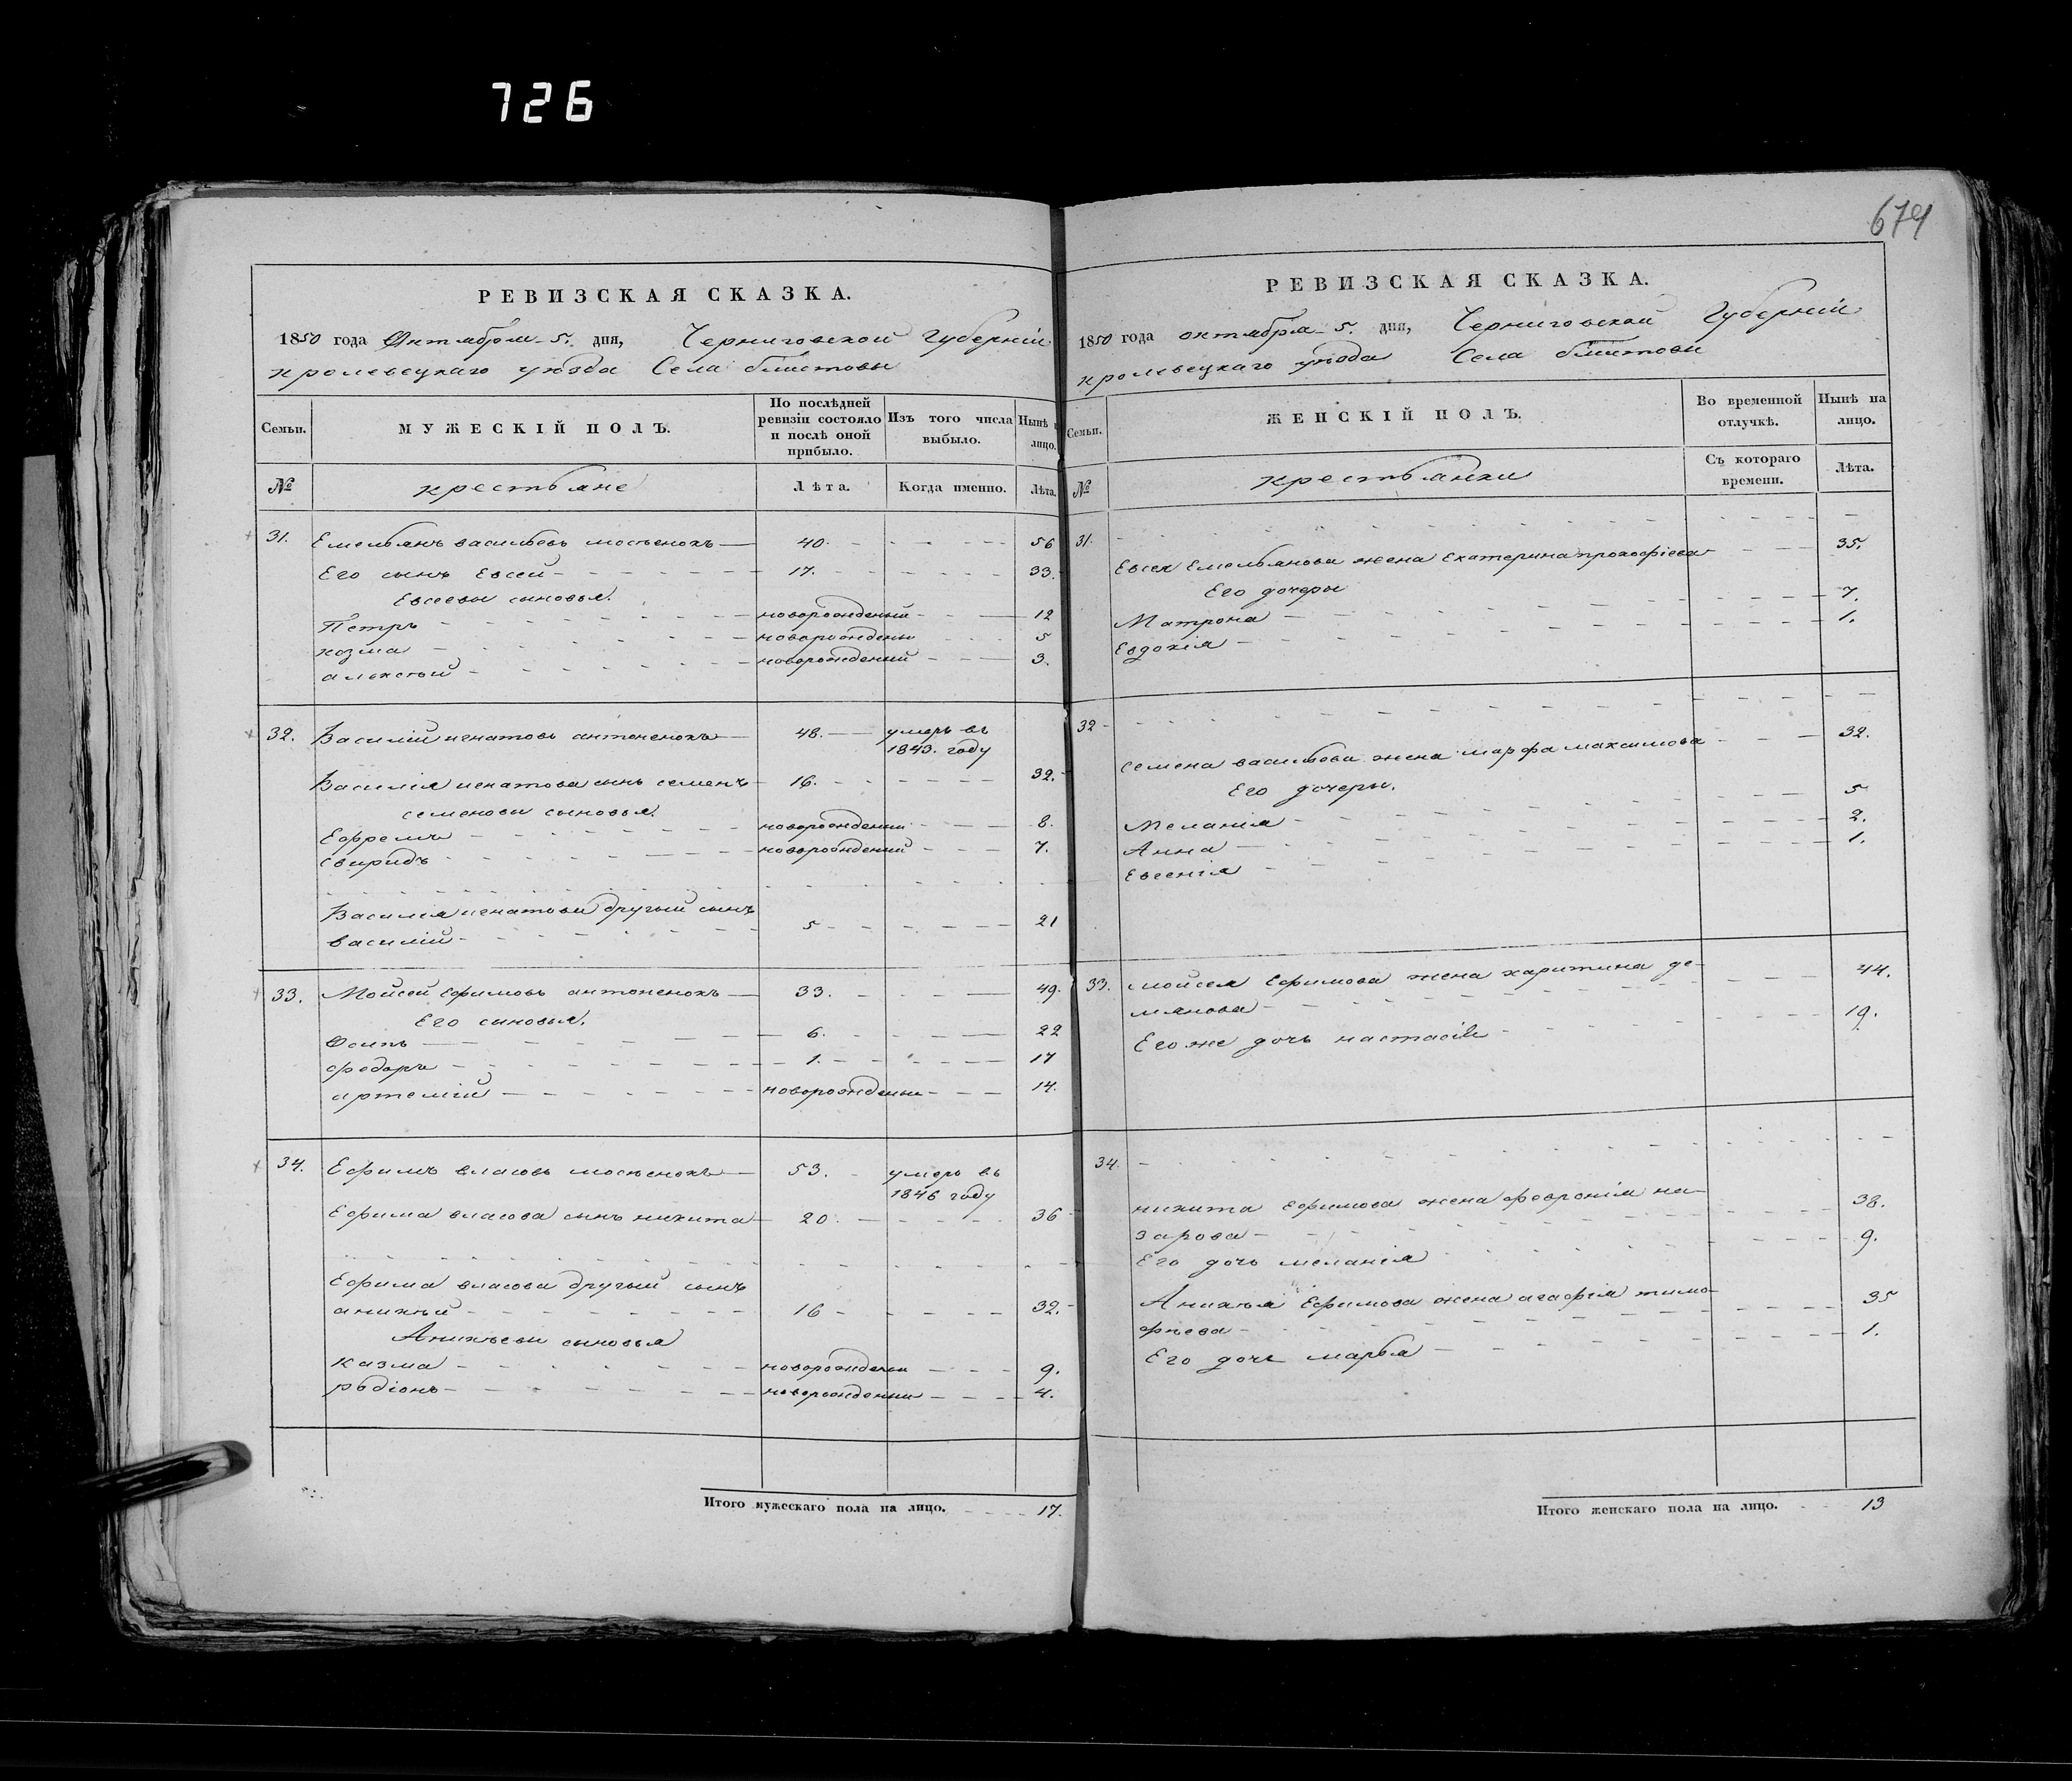 726
674
РЕВИЗСКАЯ СКАЗКА.
1850 года Октября 5. дня, Черниговской Губерніи
кролевецкаго уѣзда Села блистовы
Семьи. МУЖЕСКІЙ ПОЛЪ. По послѣдней ревизіи состояло и послѣ оной прибыло. Изъ того числа выбыло. Нынѣ лицо.
№ крестьяне Лѣта. Когда именно. Лѣта.
31. Емельянъ васильевъ мосѣенокъ 40. 56
Его сынъ Евсей 17. 33.
Евсеевы сыновья.
Петръ новорожденый 12
козма новорождены 5
алексѣй новорожденый 3.
32. Василій игнатовъ антоненокъ 48. умеръ въ
1843. году
Василія игнатова сынъ семенъ 16. 32.
семеновы сыновья.
Ефремъ новорожденый 8.
свиридъ новорожденый 7.
Василія игнатова другый сынъ
василій 5 21
33. Мойсей Ефимовъ антоненокъ 33. 49.
Его сыновья.
Осипъ 6. 22
федоръ 1. 17
артемій новорожденый 14.
34. Ефимъ власовъ мосѣенокъ 53. умеръ въ
1846 году
Ефима власова сынъ никита 20. 36
Ефима власова другый сынъ
аникѣй 16 32.
Аникѣевы сыновья
казма новорожденый 9.
родіонъ новорожденый 4.
Итого мужескаго пола на лицо. 17.
РЕВИЗСКАЯ СКАЗКА.
1850 года октября 5. дня, Черниговской Губерніи
кролевецкаго уѣзда Села блистовы
Семьи. ЖЕНСКІЙ ПОЛЪ. Во временной отлучкѣ. Нынѣ на лицо.
№ крестьянки Съ котораго времени. Лѣта.
31.
Евсея Емельянова жена Екатерина прокофіева 35.
Его дочеры
Матрона 7.
Евдокія 1.
32
семена васильева жена марфа максимова 32.
Его дочеры.
Меланія 5
Анна 2.
Евгенія 1.
33. мойсея Ефимова жена харитина де- 44.
мянова
Его же дочь настасія 19.
34.
никита Ефимова жена февронія на- 38.
зарова
Его дочь меланія 9.
Аникѣя Ефимова жена агафія тимо- 35
фѣева
Его дочь марья 1.
Итого женскаго пола на лицо. 13